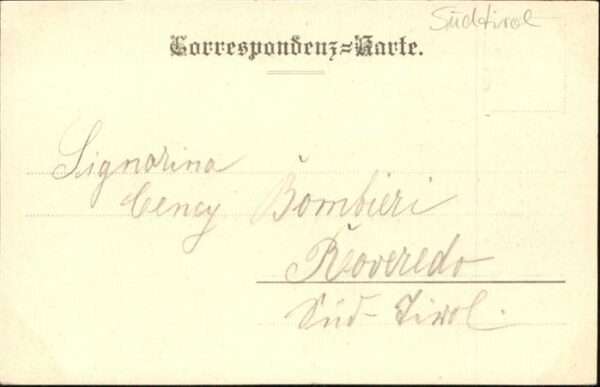 Südtirol
Correspondenz-Karte.
Signorina
Cency Bombieri
Roveredo
Süd-Tirol.